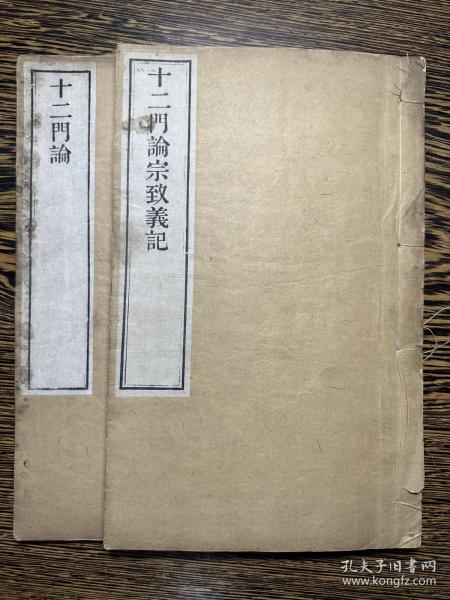 十二門論宗致義記
十二門論
孔夫子旧书网
www.kongfz.com